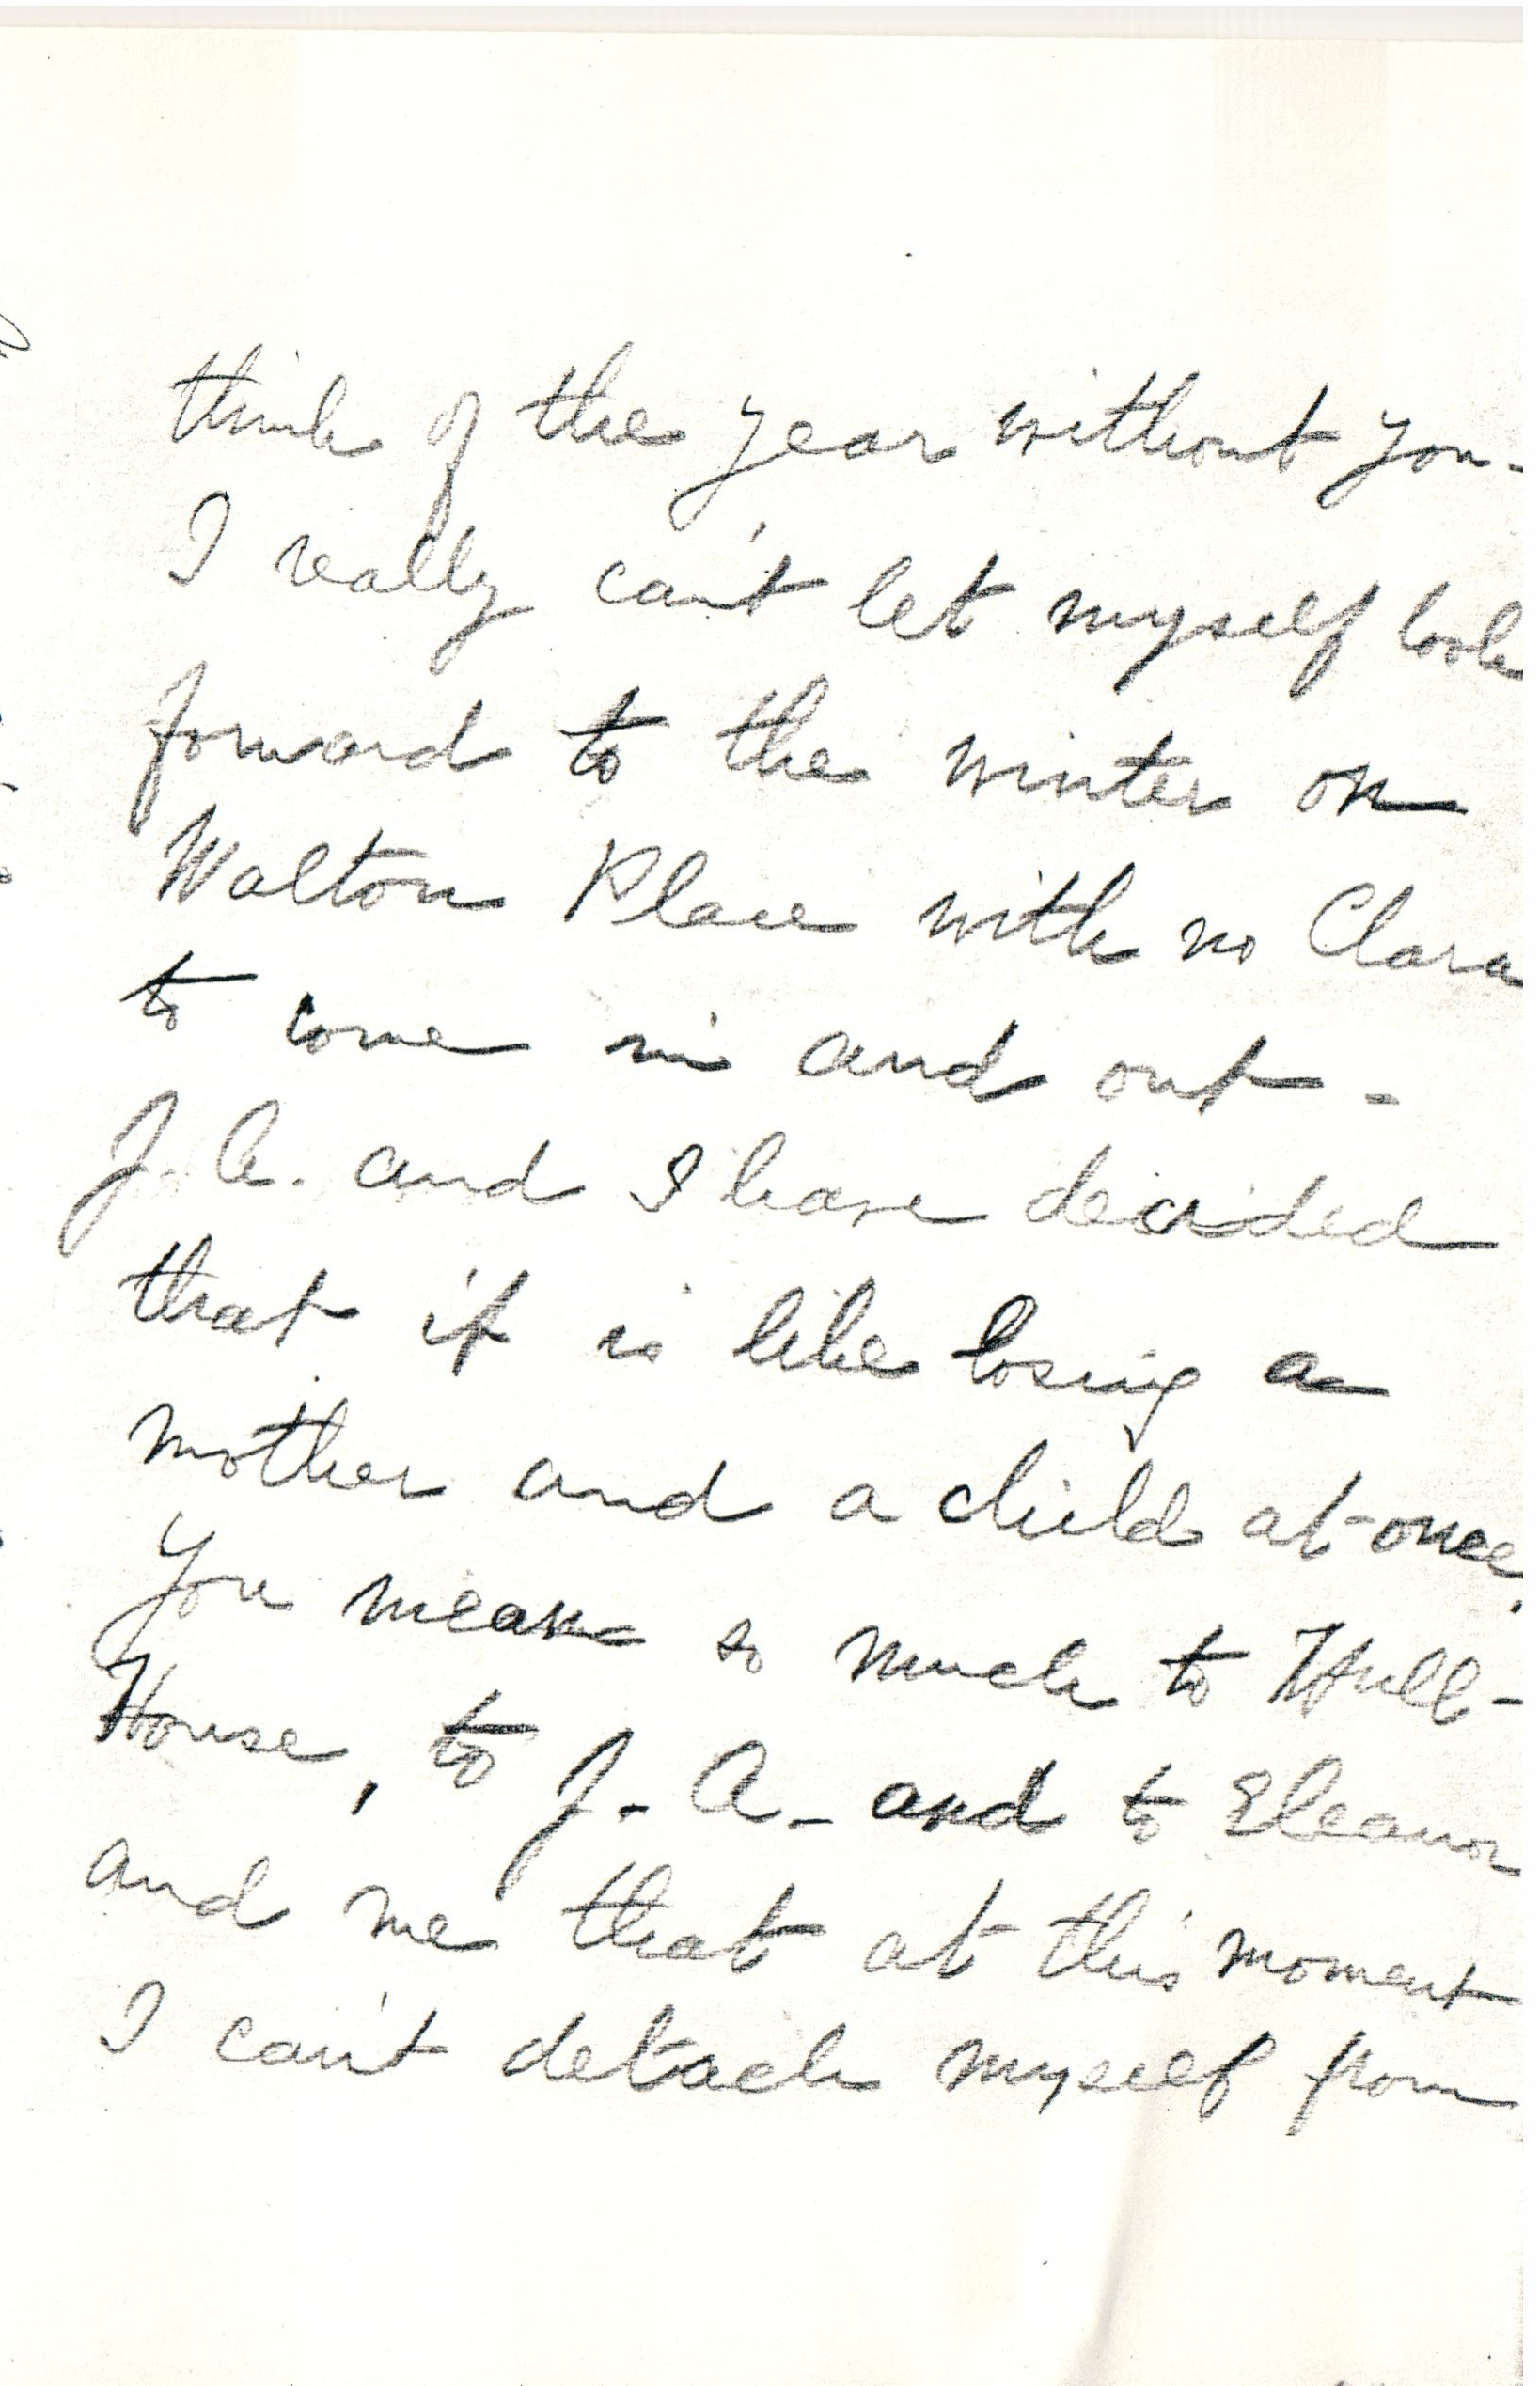 think of the year without you -
I really can't let myself look
forward to the winter on
Walton Place with no Clara
to come in and out -
J. A. and I have decided
that it is like losing a
mother and a child at once.
You mean so much to Hull-
House, to J. A. and to Eleanor
and me that at this moment
I can't detach myself from